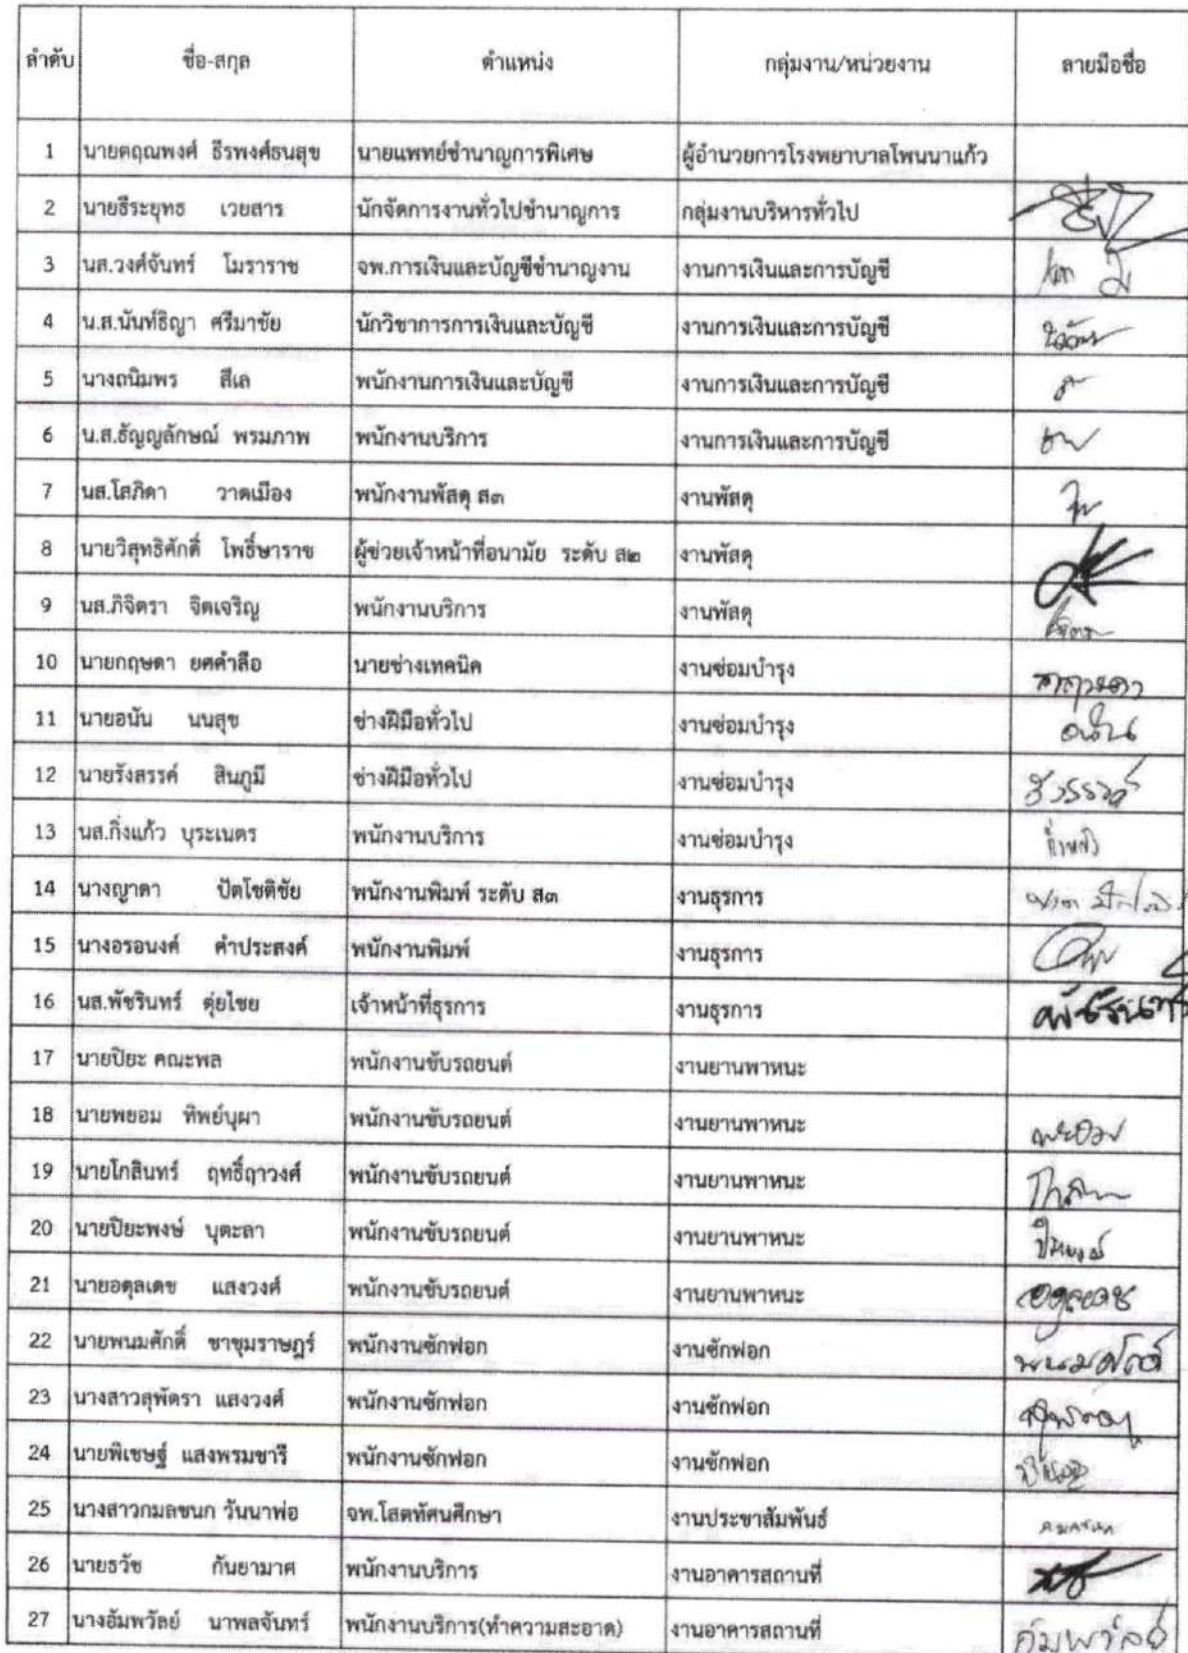 ลำดับ ชื่อ-สกุล ตำแหน่ง กลุ่มงาน/หน่วยงาน ลายมือชื่อ
1 นายตฤณพงศ์ ธีรพงศ์ธนสุข นายแพทย์ชำนาญการพิเศษ ผู้อำนวยการโรงพยาบาลโพนนาแก้ว
2 นายธีระยุทธ เวยสาร นักจัดการงานทั่วไปชำนาญการ กลุ่มงานบริหารทั่วไป
3 นส.วงศ์จันทร์ โมราราช จพ.การเงินและบัญชีชำนาญงาน งานการเงินและการบัญชี
4 น.ส.นันท์ธิญา ศรีมาชัย นักวิชาการการเงินและบัญชี งานการเงินและการบัญชี
5 นางถนิมพร สีเล พนักงานการเงินและบัญชี งานการเงินและการบัญชี
6 น.ส.ธัญญลักษณ์ พรมภาพ พนักงานบริการ งานการเงินและการบัญชี
7 นส.โสภิดา วาดเมือง พนักงานพัสดุ ส๓ งานพัสดุ
8 นายวิสุทธิศักดิ์ โพธิ์ษาราช ผู้ช่วยเจ้าหน้าที่อนามัย ระดับ ส๒ งานพัสดุ
9 นส.ภิจิตรา จิตเจริญ พนักงานบริการ งานพัสดุ
10 นายกฤษดา ยศคำลือ นายช่างเทคนิค งานซ่อมบำรุง
11 นายอนัน นนสุข ช่างฝีมือทั่วไป งานซ่อมบำรุง อนัน
12 นายรังสรรค์ สินภูมี ช่างฝีมือทั่วไป งานซ่อมบำรุง รังสรรค์
13 นส.กิ่งแก้ว บุระเนตร พนักงานบริการ งานซ่อมบำรุง
14 นางญาดา ปัตโชติชัย พนักงานพิมพ์ ระดับ ส๓ งานธุรการ
15 นางอรอนงค์ คำประสงค์ พนักงานพิมพ์ งานธุรการ
16 นส.พัชรินทร์ ตุ่ยไชย เจ้าหน้าที่ธุรการ งานธุรการ พัชรินทร์
17 นายปิยะ คณะพล พนักงานขับรถยนต์ งานยานพาหนะ
18 นายพยอม ทิพย์บุผา พนักงานขับรถยนต์ งานยานพาหนะ พะยอม
19 นายโกสินทร์ ฤทธิ์ฤาวงศ์ พนักงานขับรถยนต์ งานยานพาหนะ
20 นายปิยะพงษ์ บุตะลา พนักงานขับรถยนต์ งานยานพาหนะ
21 นายอดุลเดช แสงวงศ์ พนักงานขับรถยนต์ งานยานพาหนะ อดุลเดช
22 นายพนมศักดิ์ ชาชุมราษฎร์ พนักงานซักฟอก งานซักฟอก พนมศักดิ์
23 นางสาวสุพัตรา แสงวงศ์ พนักงานซักฟอก งานซักฟอก
24 นายพิเชษฐ์ แสงพรมชารี พนักงานซักฟอก งานซักฟอก
25 นางสาวกมลชนก วันนาพ่อ จพ.โสตทัศนศึกษา งานประชาสัมพันธ์ กมลชนก
26 นายธวัช กันยามาศ พนักงานบริการ งานอาคารสถานที่
27 นางอัมพวัลย์ นาพลจันทร์ พนักงานบริการ(ทำความสะอาด) งานอาคารสถานที่ อัมพวัลย์